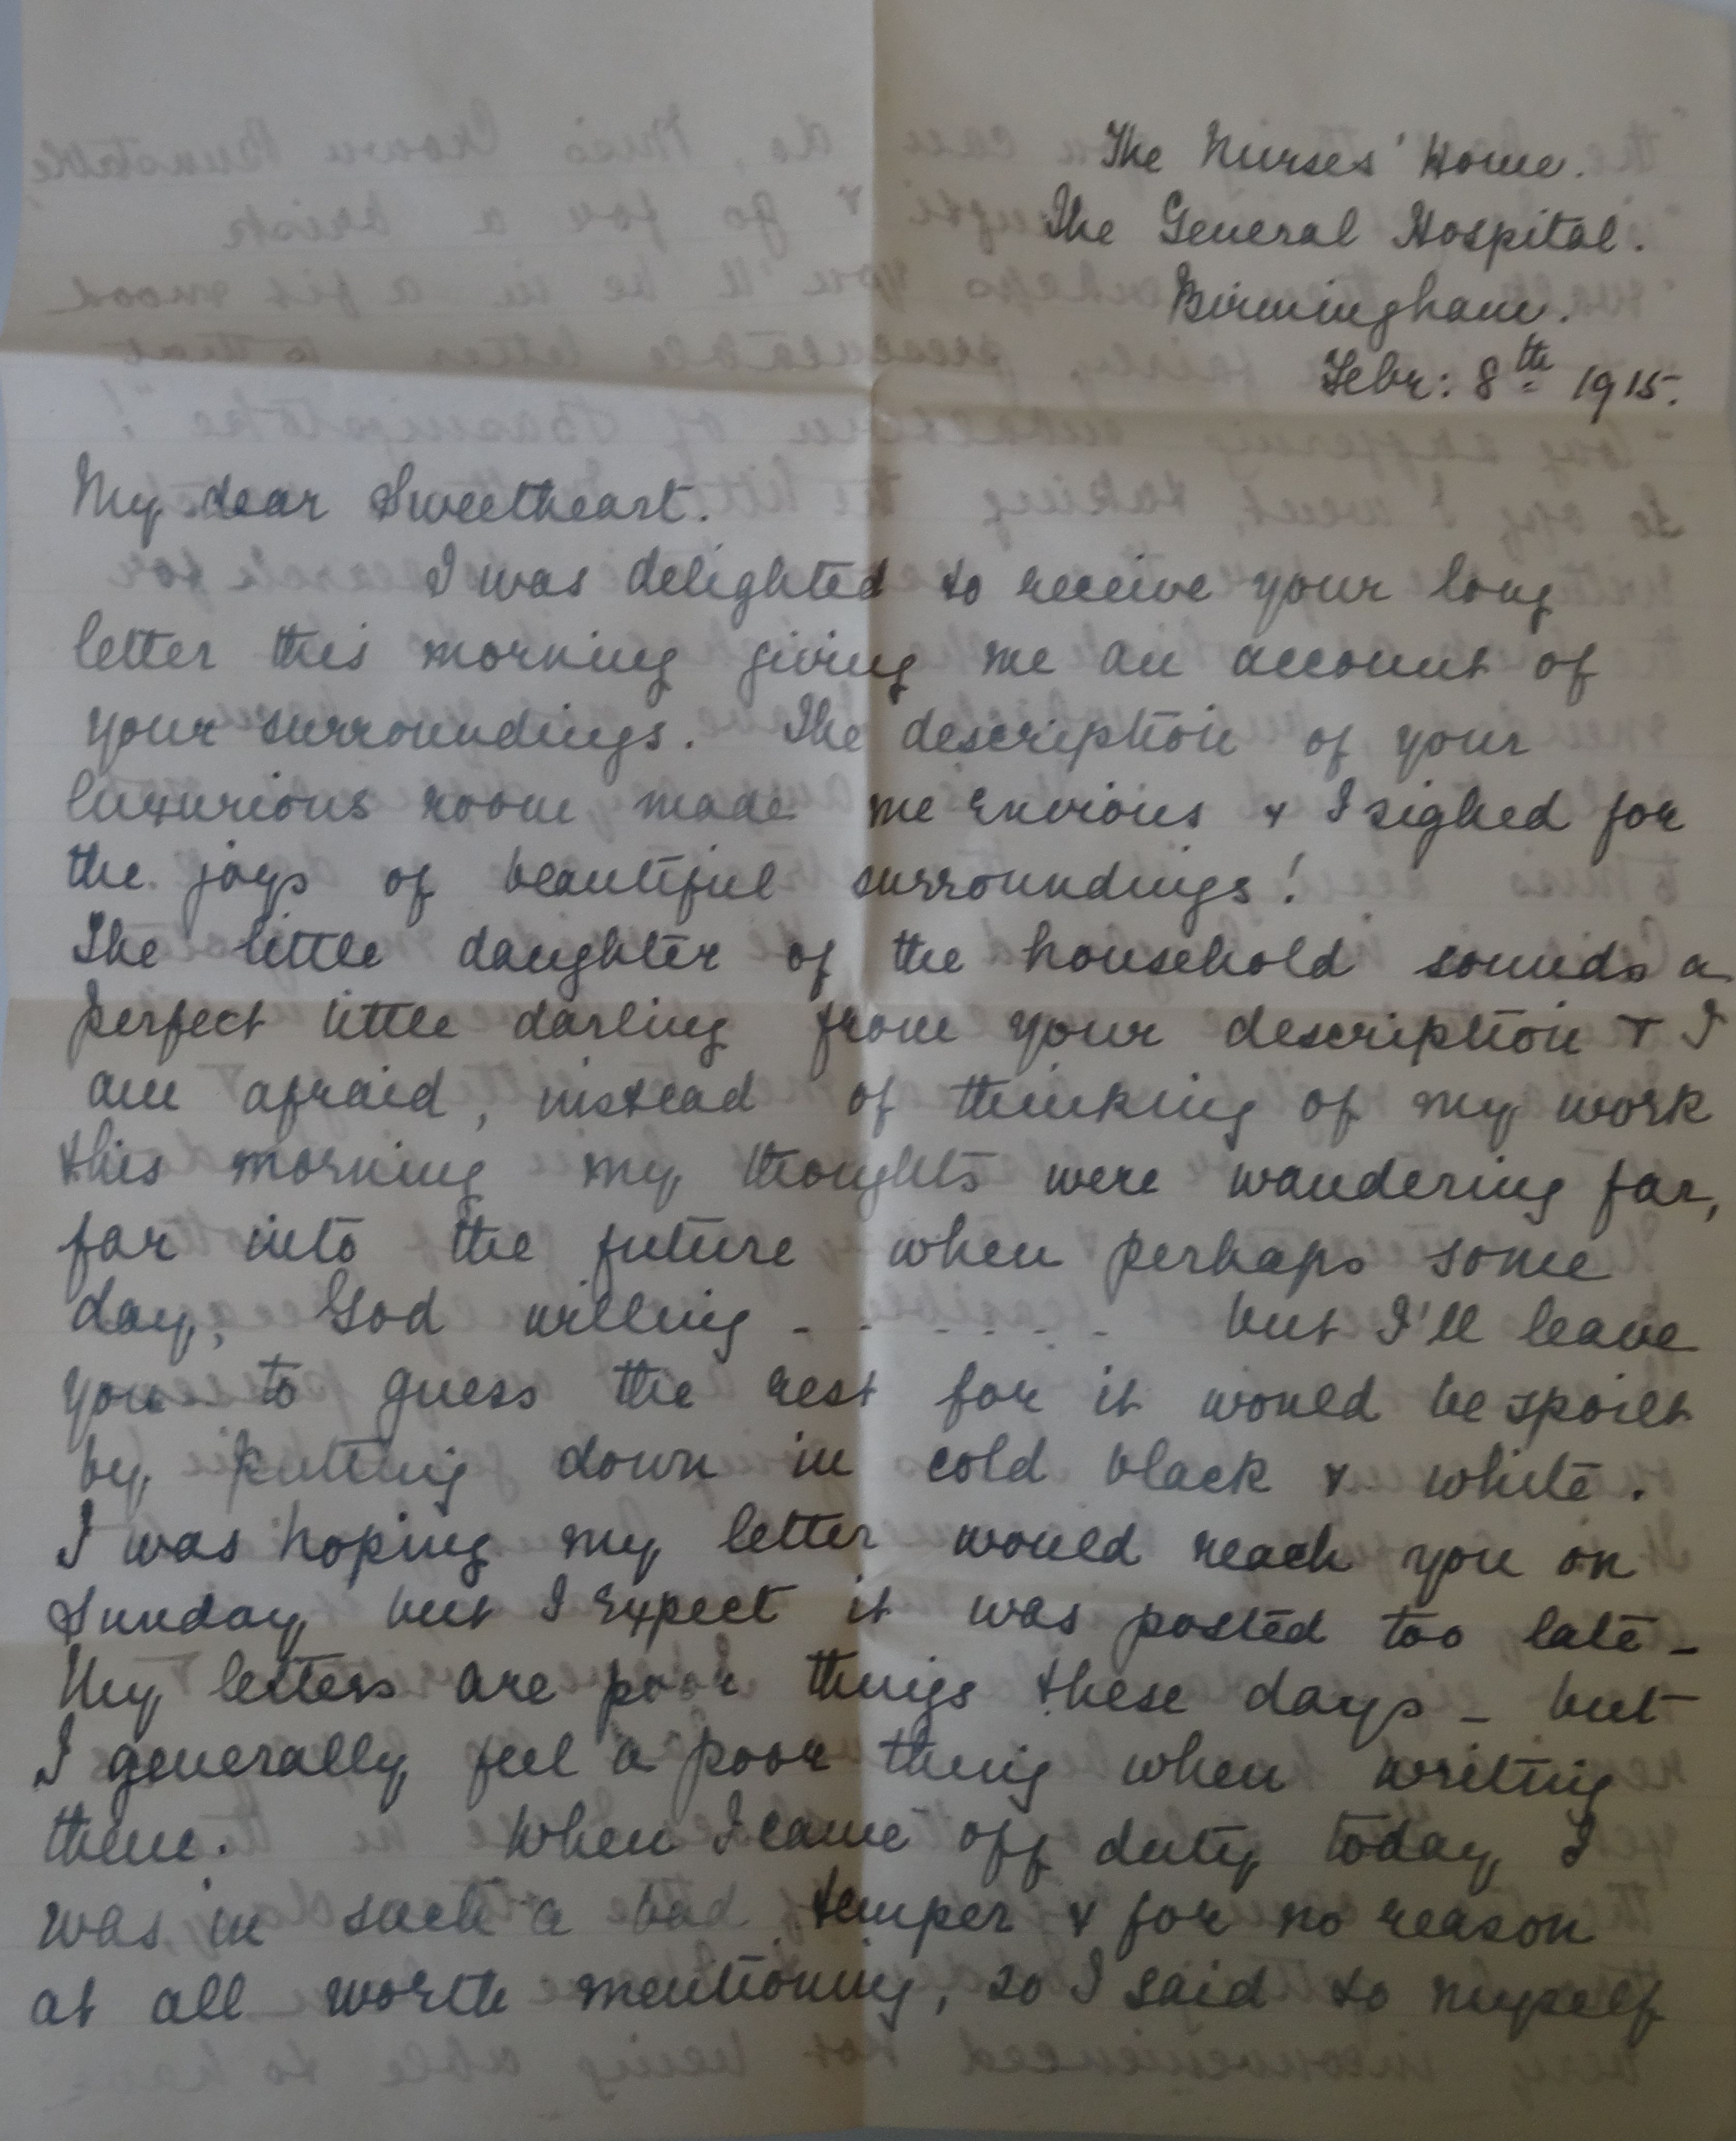 The Nurses' Home.
The General Hospital.
Birmingham.
Febr: 8th 1915.
My dear Sweetheart.
I was delighted to receive your long
letter this morning giving me an account of
your surroundings. The description of your
luxurious room made me envious & I sighed for
the joys of beautiful surroundings!
The little daughter of the household sounds a
perfect little darling from your description & I
am afraid, instead of thinking of my work
this morning my thoughts were wandering far,
far into the future when perhaps some
day, God willing - - - - - - - but I'll leave
you to guess the rest for it would be spoilt
by putting down in cold black & white.
I was hoping my letter would reach you on
Sunday but I expect it was posted too late -
My letters are poor things these days - but
I generally feel a poor thing when writing
them. When I came off duty today I
was in such a bad temper & for no reason
at all worth mentioning, so I said to myself